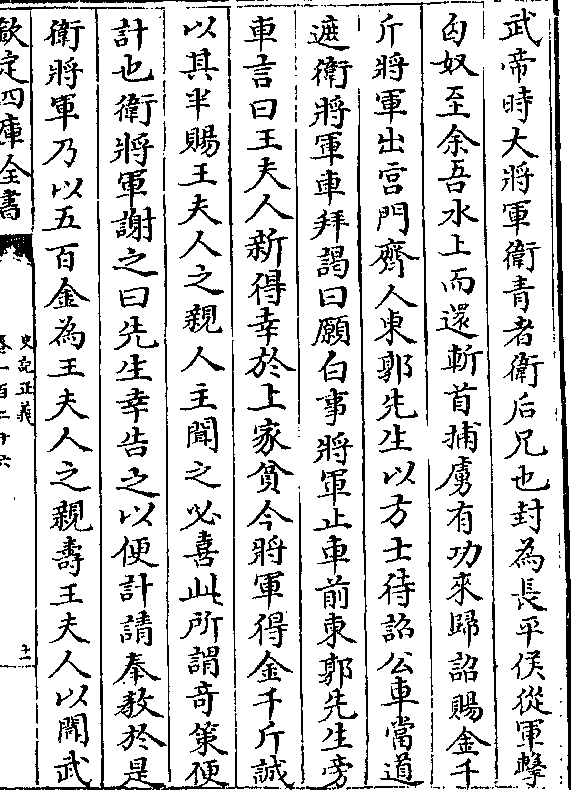 武帝時大將軍衛青者衛后兄也封為長平侯從軍擊
匈奴至余吾水上而還斬首捕虜有功來歸詔賜金千
斤將軍出宮門齊人東郭先生以方士待詔公車當道
遮衛將軍車拜謁曰願白事將軍止車前東郭先生旁
車言曰王夫人新得幸於上家貧今將軍得金千斤誠
以其半賜王夫人之親人主聞之必喜此所謂奇策便
計也衛將軍謝之曰先生幸告之以便計請奉教於是
衛將軍乃以五百金為王夫人之親壽王夫人以聞武
欽定四庫全書
史記正義
卷一百二十六
十一